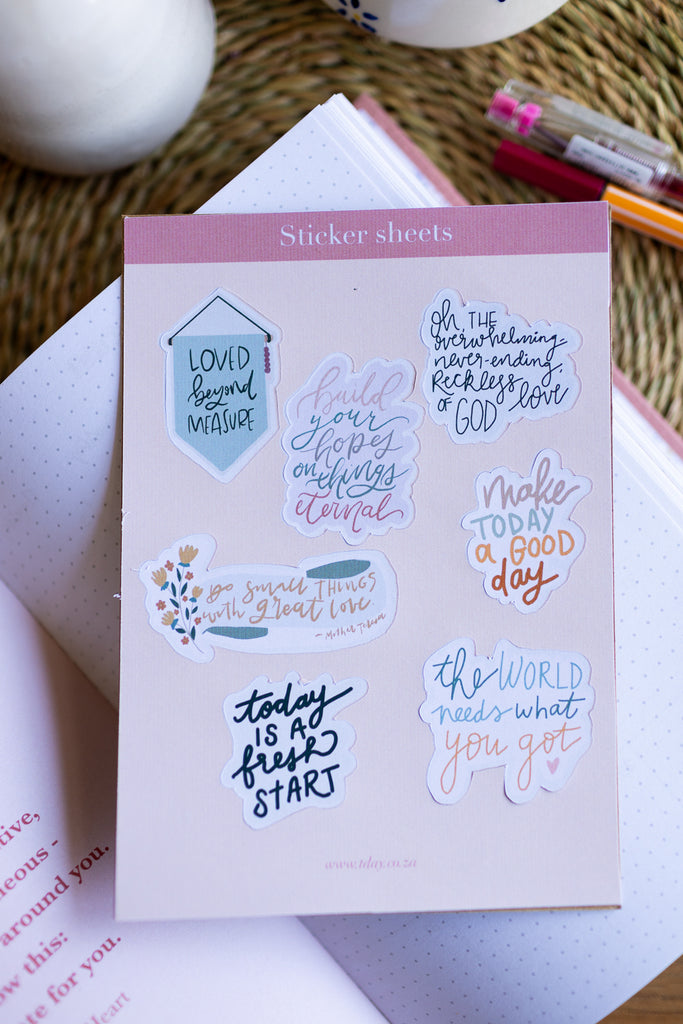 Sticker sheets
LOVED
beyond
MEASURE
oh, THE
overwhelming
never-ending,
Reckless
love
OF GOD
build
your
hopes
on things
eternal
make
TODAY
a GOOD
day
DO SMALL THINGS
with great love
- Mother Teresa
today
IS A
fresh
START
the WORLD
needs what
you got
www.tday.co.za
around you.
this:
for you.